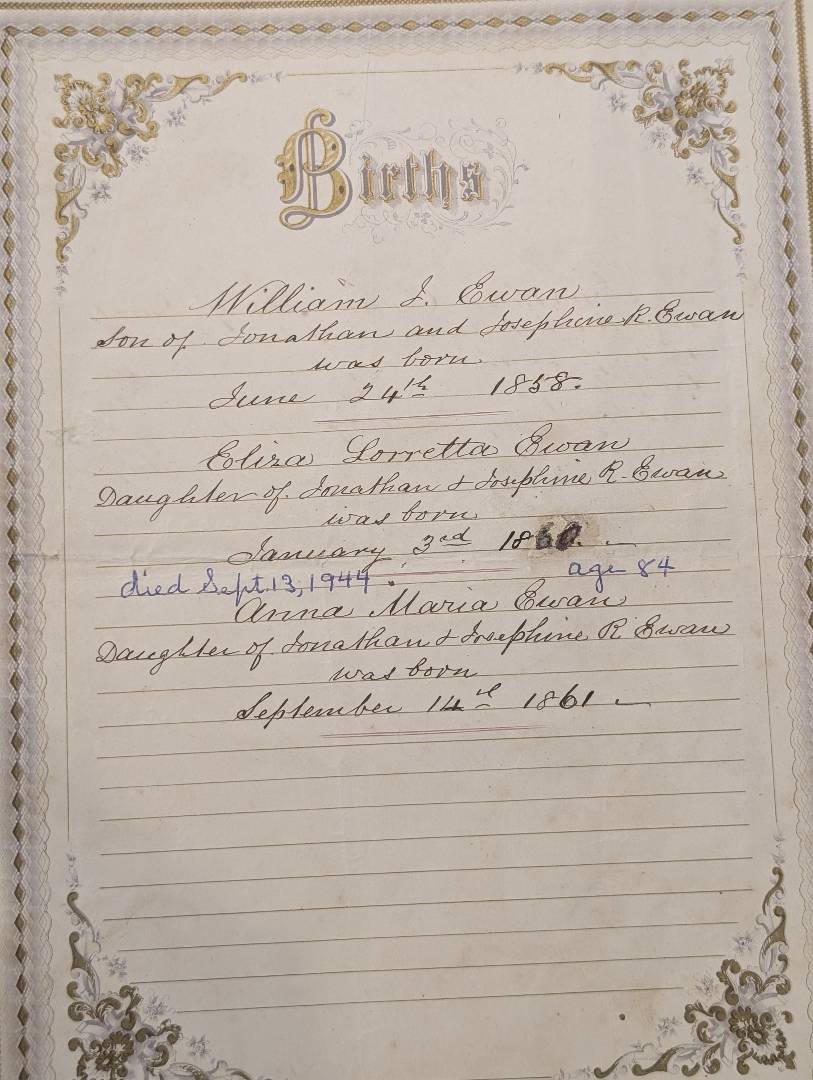 Births
William J. Ewan
Son of Jonathan and Josephine R. Ewan
was born
June 24th 1858.
Eliza Lorretta Ewan
Daughter of Jonathan & Josephine R. Ewan
was born
January 3rd 1860.
died Sept. 13, 1944. age 84
Anna Maria Ewan
Daughter of Jonathan & Josephine R. Ewan
was born
September 14th 1861.